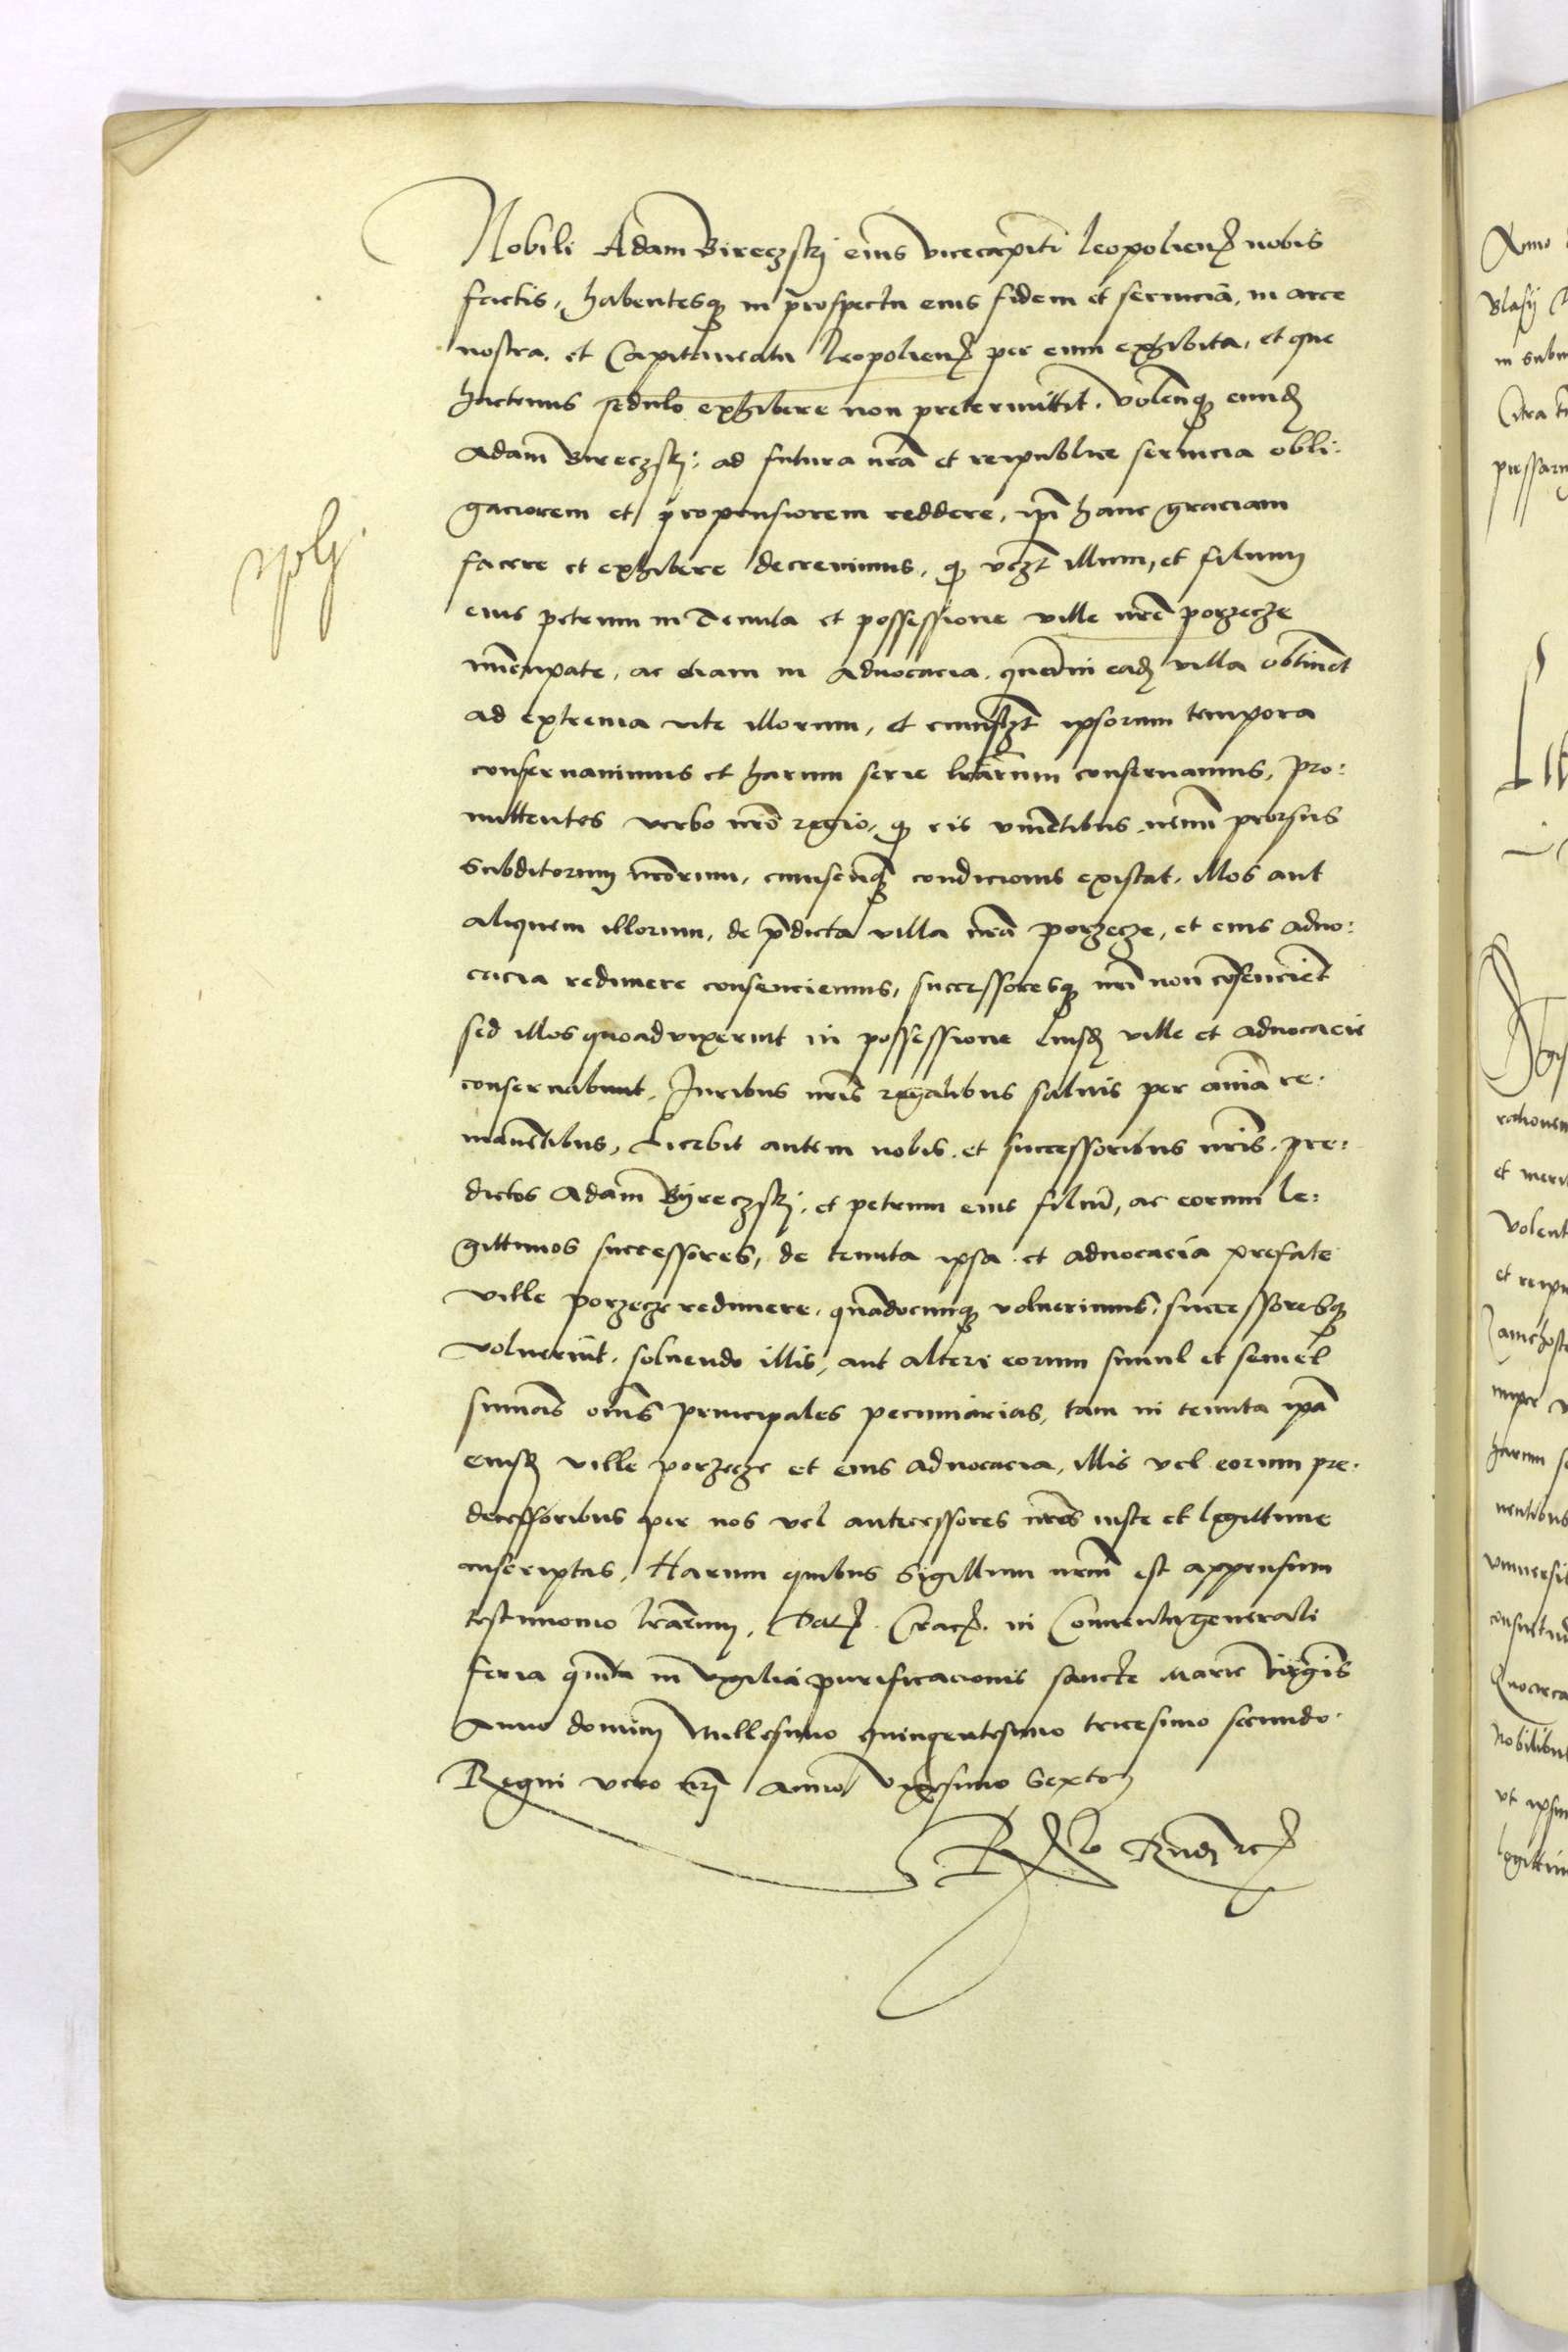 Nobili Adam Bireczskj eius vicecapiti leopolien nobis
factis, habentesq in prospectu eius fidem et seruicia, in arce
nostra, et Capitaneatu leopolien per eum exhibita, et que
hactenus sedulo exhibere non pretermittit. volenq eund
Adam Bireczskj, ad futura nra et reipublice seruicia obli:
gaciorem et propensiorem reddere, ipi hanc graciam
facere et exhibere decreuimus, q vczt illum, et filium
eius petrum in Tenuta et possessione ville nre porzecze
nuncupate, ac etiam in aduocacia, quam in ead villa obtinet
ad extrema vite illorum, et cuiuslzt ipsorum tempora
conseruauimus et harum serie lrarum conseruamus, pro:
mittentes verbo nro regio, q eis viuentibus nemini prorsus
subditorum nrorum, cuiuscunq condicionis existat, illos aut
aliquem illorum, de pdicta villa nra porzecze, et eius aduo:
cacia redimere consenciemus, successoresq nri non consencient
sed illos quoad vixerint in possessione eiusd ville et aduocacie
conseruabunt, Juribus nris regalibus saluis per omnia re:
manentibus, Licebit autem nobis, et successoribus nris, pre:
dictos Adam Byreczskj, et petrum eius filium, ac eorum le:
gittimos successores, de tenuta ipsa et aduocacia prefate
ville porzecze redimere, quandocunq voluerimus, successoresq
voluerint, soluendo illis, aut alteri eorum simul et semel
summas omes principales pecuniarias, tam in tenuta ipa
eiusd ville porzecze et eius aduocacia, illis vel eorum pre:
decessoribus per nos vel antecessores nros iuste et legittime
inscriptas, Harum quibus Sigillum nrum est appensum
testimonio lrarum, Dat Crac in Conuentu generali
feria quinta in vigilia purificacionis sancte Marie virginis
Anno domini Millesimo quingentesimo tricesimo secundo.
Regni vero nri Anno vigesimo Sexto